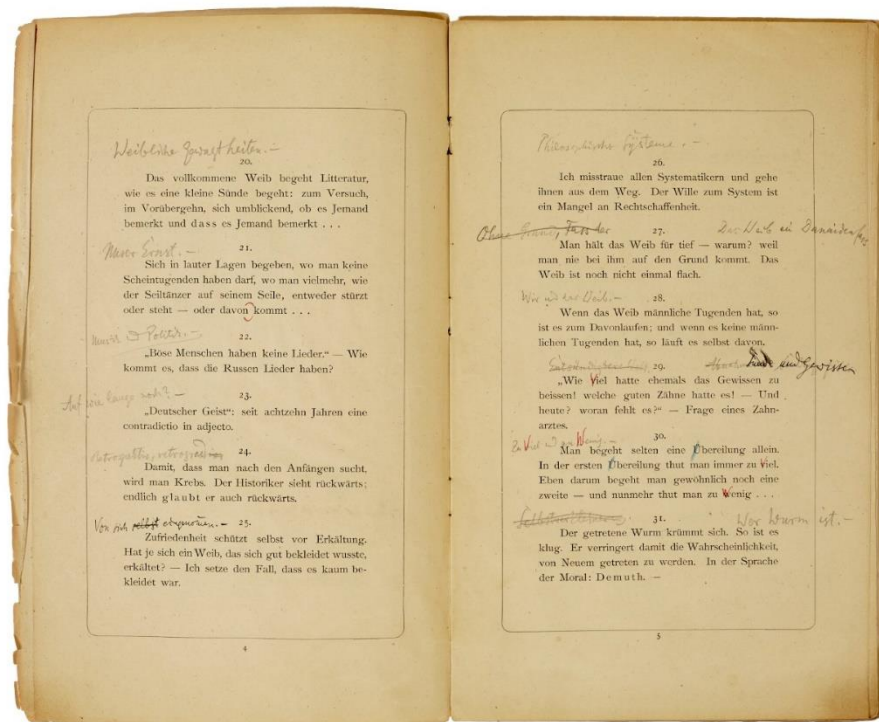 Weibliche
20.
Das vollkommene Weib begeht Litteratur,
wie es eine kleine Sünde begeht: zum Versuch,
im Vorübergehn, sich umblickend, ob es Jemand
bemerkt und dass es Jemand bemerkt . . .
Unser Ernst. —
21.
Sich in lauter Lagen begeben, wo man keine
Scheintugenden haben darf, wo man vielmehr, wie
der Seiltänzer auf seinem Seile, entweder stürzt
oder steht — oder davon kommt . . .
22.
„Böse Menschen haben keine Lieder.“ — Wie
kommt es, dass die Russen Lieder haben?
Auf wie lange noch? —
23.
„Deutscher Geist“: seit achtzehn Jahren eine
contradictio in adjecto.
24.
Damit, dass man nach den Anfängen sucht,
wird man Krebs. Der Historiker sieht rückwärts;
endlich glaubt er auch rückwärts.
Von sich selbst eingenommen. — 25.
Zufriedenheit schützt selbst vor Erkältung.
Hat je sich ein Weib, das sich gut bekleidet wusste,
erkältet? — Ich setze den Fall, dass es kaum be-
kleidet war.
4
Philosophische Systeme. —
26.
Ich misstraue allen Systematikern und gehe
ihnen aus dem Weg. Der Wille zum System ist
ein Mangel an Rechtschaffenheit.
27. Das Weib ein
Man hält das Weib für tief — warum? weil
man nie bei ihm auf den Grund kommt. Das
Weib ist noch nicht einmal flach.
Wir und das Weib. —
28.
Wenn das Weib männliche Tugenden hat, so
ist es zum Davonlaufen; und wenn es keine männ-
lichen Tugenden hat, so läuft es selbst davon.
29. und Gewissen
„Wie Viel hatte ehemals das Gewissen zu
beissen! welche guten Zähne hatte es! — Und
heute? woran fehlt es?“ — Frage eines Zahn-
arztes.
Zu Viel und zu Wenig. —
30.
Man begeht selten eine Übereilung allein.
In der ersten Übereilung thut man immer zu Viel.
Eben darum begeht man gewöhnlich noch eine
zweite — und nunmehr thut man zu Wenig . . .
31. Wer Wurm ist. —
Der getretene Wurm krümmt sich. So ist es
klug. Er verringert damit die Wahrscheinlichkeit,
von Neuem getreten zu werden. In der Sprache
der Moral: Demuth. —
5